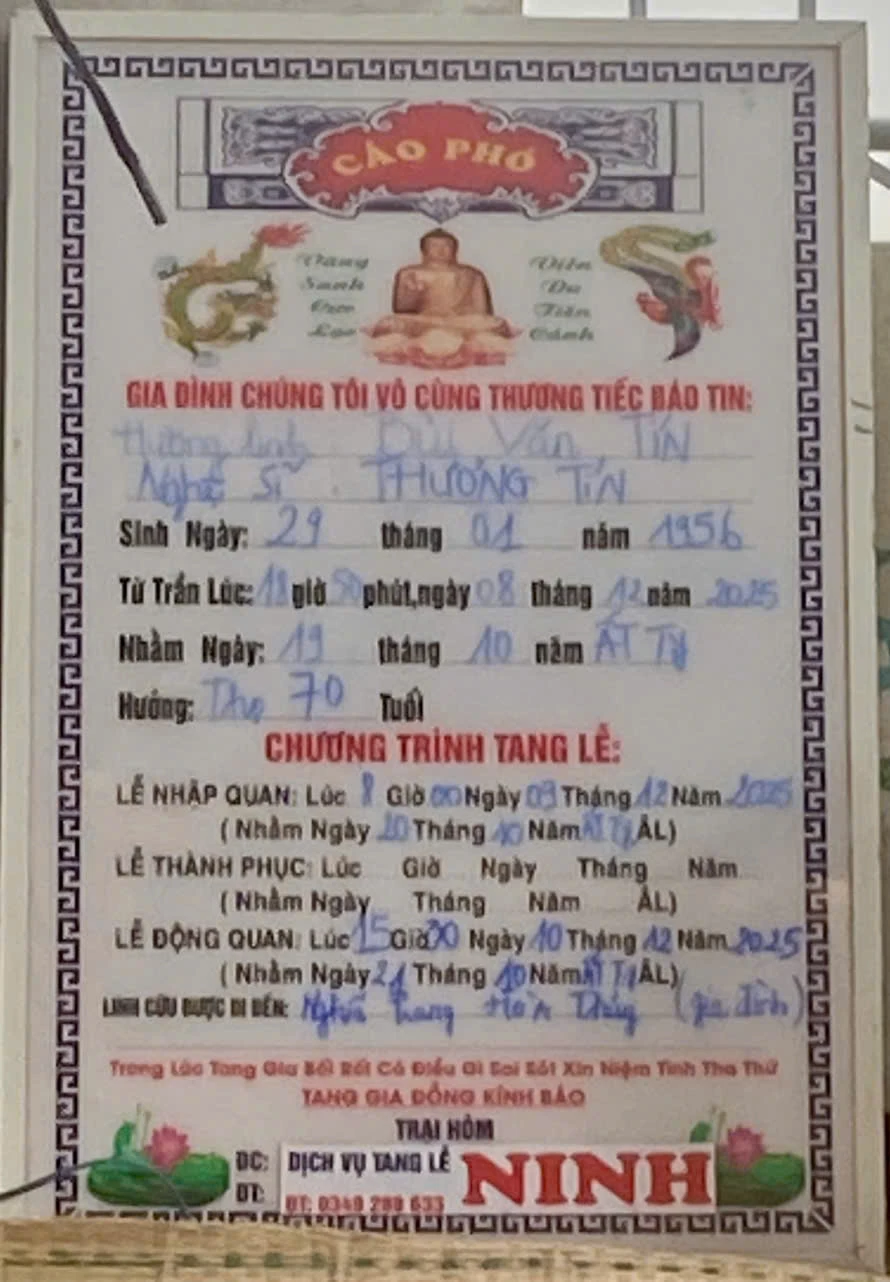 CÁO PHÓ
Vãng
Sanh
Cực
Lạc
Diên
Du
Tiên
Cảnh
GIA ĐÌNH CHÚNG TÔI VÔ CÙNG THƯƠNG TIẾC BÁO TIN:
Hương linh Bùi Văn TÍN
Nghệ Sĩ THƯƠNG TÍN
Sinh Ngày: 29 tháng 01 năm 1956
Từ Trần Lúc: 18 giờ 50 phút,ngày 08 tháng 12 năm 2025
Nhằm Ngày: 19 tháng 10 năm ẤT Tỵ
Hưởng: Thọ 70 Tuổi
CHƯƠNG TRÌNH TANG LỄ:
LỄ NHẬP QUAN: Lúc 8 Giờ 00 Ngày 09 Tháng 12 Năm 2025
( Nhằm Ngày 20 Tháng 10 Năm ẤT Tỵ ÂL)
LỄ THÀNH PHỤC: Lúc Giờ Ngày Tháng Năm
( Nhằm Ngày Tháng Năm ÂL)
LỄ ĐỘNG QUAN: Lúc 15 Giờ 30 Ngày 10 Tháng 12 Năm 2025
( Nhằm Ngày 21 Tháng 10 Năm ẤT Tỵ ÂL)
LINH CỮU ĐƯỢC DI ĐẾN: Nghĩa Trang (gia đình)
Trong Lúc Tang Gia Bối Rối Có Điều Gì Sai Sót Xin Niệm Tình Tha Thứ
TANG GIA ĐỒNG KÍNH BÁO
TRẠI HÒM
ĐC: DỊCH VỤ TANG LỄ NINH
ĐT: ĐT: 0349 289 633